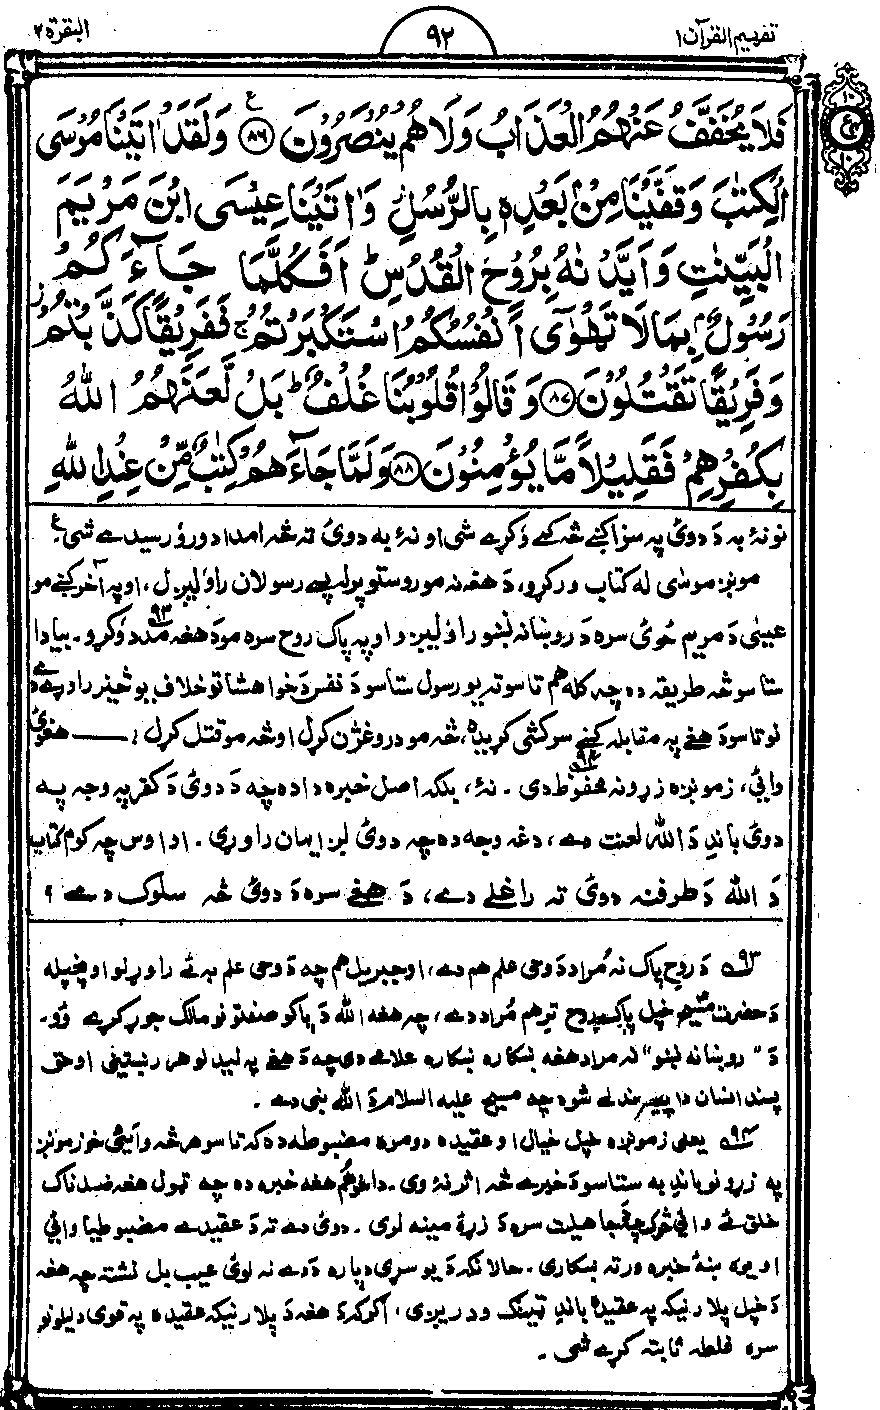 تفہیم القرآن ۱
۹۲
البقرة ۲
فَلَا يُخَفَّفُ عَنْهُمُ الْعَذَابُ وَلَا هُمْ يُنْصَرُوْنَ ﴿۸۶﴾ وَلَقَدْ اٰتَيْنَا مُوْسَى
الْكِتٰبَ وَقَفَّيْنَا مِنْۢ بَعْدِهٖ بِالرُّسُلِ وَاٰتَيْنَا عِيْسَى ابْنَ مَرْيَمَ
الْبَيِّنٰتِ وَاَيَّدْنٰهُ بِرُوْحِ الْقُدُسِ ؕ اَفَكُلَّمَا جَآءَكُمْ
رَسُوْلٌۢ بِمَا لَا تَهْوٰٓى اَنْفُسُكُمُ اسْتَكْبَرْتُمْ ۚ فَفَرِيْقًا كَذَّبْتُمْ ز
وَفَرِيْقًا تَقْتُلُوْنَ ﴿۸۷﴾ وَقَالُوْا قُلُوْبُنَا غُلْفٌ ؕ بَلْ لَّعَنَهُمُ اللّٰهُ
بِكُفْرِهِمْ فَقَلِيْلًا مَّا يُؤْمِنُوْنَ ﴿۸۸﴾ وَلَمَّا جَآءَهُمْ كِتٰبٌ مِّنْ عِنْدِ اللّٰهِ
نو نۀ به د دوئ په سزا کښے څه کمے وکړے شی او نۀ به دوئ ته څه امداد ورؤرسیدے شی ع
مونږ موسٰی له کتاب ورکړو، د هغه نه وروستو پرله پسے رسولان راولیږل، او په آخر کښے مو
عیسٰی د مریم ځوئ سره د روښانه نښو راؤلیږو او په پاک روح سره مو د هغه ۹۳ مدد وکړو. بیا دا
ستاسو څه طریقه ده چه کله هم تاسو ته یو رسول ستاسو د نفس د خواهشاتو خلاف یو څیز راوړے دے
نو تاسو د هغۀ په مقابله کښے سرکشی کړیده، څه مو دروغژن کړل او څه مو قتل کړل! ــــ هغوئ
وائی، زمونږه زړونه محفوظ ۹۴ دی. نۀ، بلکه اصل خبره دا ده چه د دوئ د کفر په وجه په
دوئ باندِ د الله لعنت دے، دغه وجه ده چه دوئ لږ ایمان راوړی. او اوس چه کوم کتاب
د الله د طرفنه دوئ ته راغلے دے، د هغے سره د دوئ څه سلوک دے ؟
۹۳ د روح پاک نه مُراد د وحی علم هم دے، او جبریل هم چه د وحی علم به ئے راوړلو او پخپله
د حضرت مسیحؑ خپل پاک روح ترې هم مُراد دے، چه هغه الله د پاکو صفتونو مالک جوړ کړے وُو.
د ”روښانه نښو“ نه مراد هغه ښکاره ښکاره علامے دی چه د هغے په لیدلو هر رښتینی او حق
پسند انسان دا پیژندلے شوه چه مسیح علیه السلام د الله نبی دے.
۹۴ یعنی زمونږه خپل خیال او عقیده دومره مضبوطه ده که تاسو هر څه وائیی خو زمونږ
په زړونو باندِ به ستاسو د خبرے څه اثر نۀ وی. دا هم هغه خبره ده چه ټول هغه ضدناک
خلق ئے وائی جاهلیت سره د زړۀ مینه لری. دوئ دے ته د عقیدے مضبوطیا وائی
او یوه ښۀ خبره ورته ښکاری. حالانکه د یو سړی دپاره د دے نه لوئی عیب بل نشته چه هغه
د خپل پلار نیکه په عقیده باندِ ټینګ ودریږی، اګر که د هغه د پلار نیکه عقیده په قوی دلیلونو
سره غلطه ثابته کړے شی.